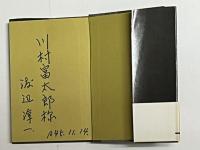 川村富太郎様
渡辺淳一
1945.11.14.